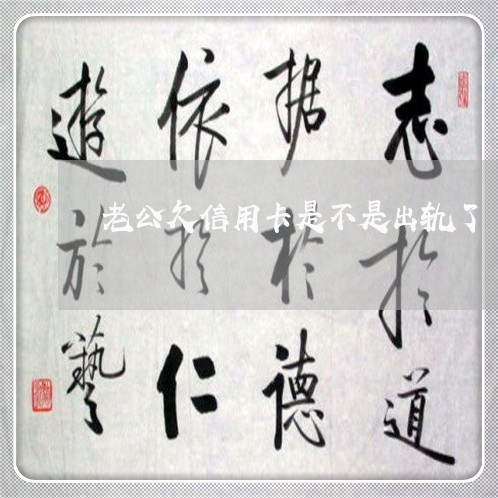 志於道
据於德
依於仁
遊於藝
老公欠信用卡是不是出轨了